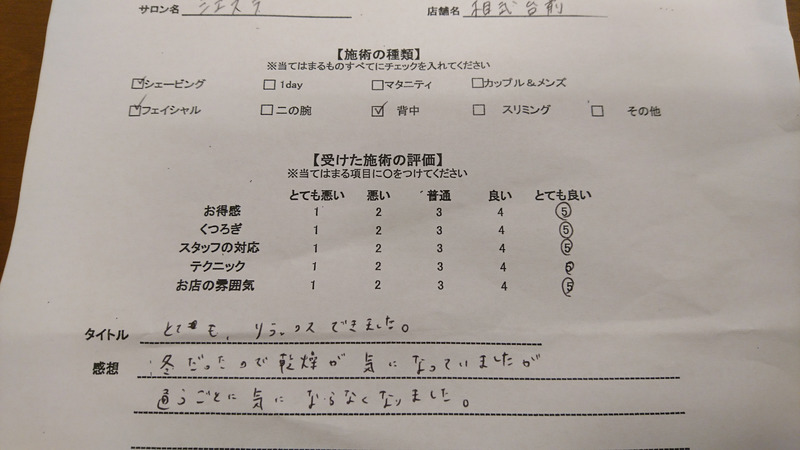 サロン名 シエスタ 店舗名 相武台前
【施術の種類】
※当てはまるものすべてにチェックを入れてください
☑シェービング □1day □マタニティ □カップル&メンズ
☑フェイシャル □二の腕 ☑背中 □スリミング □その他
【受けた施術の評価】
※当てはまる項目に○をつけてください
とても悪い 悪い 普通 良い とても良い
お得感 1 2 3 4 5
くつろぎ 1 2 3 4 5
スタッフの対応 1 2 3 4 5
テクニック 1 2 3 4 5
お店の雰囲気 1 2 3 4 5
タイトル とても、リラックスできました。
感想 冬だったので乾燥が気になっていましたが
通うごとに気にならなくなりました。